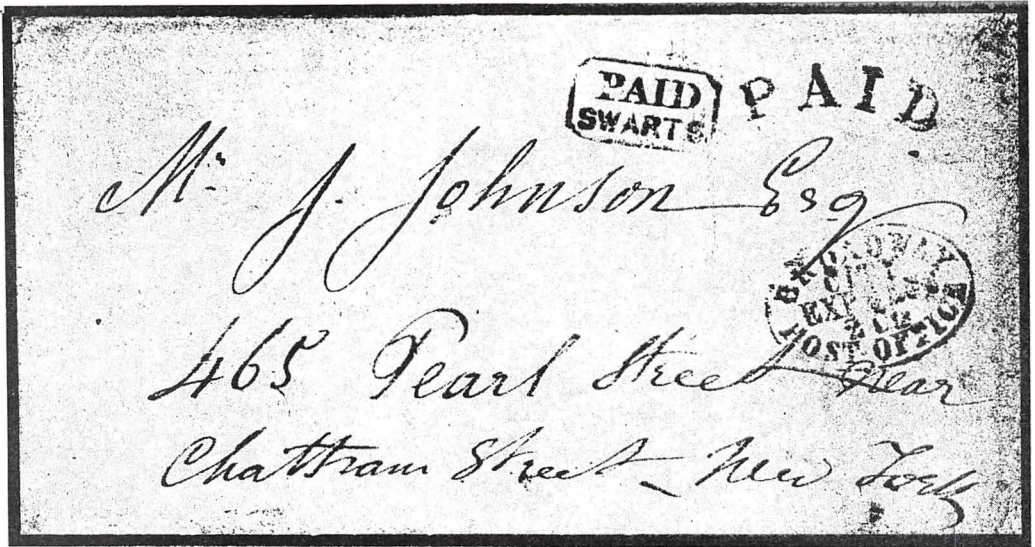 PAID
SWARTS
PAID
Mr. J. Johnson Esq
BROADWAY
POST OFFICE
465 Pearl Street Near
Chattram Street - New York